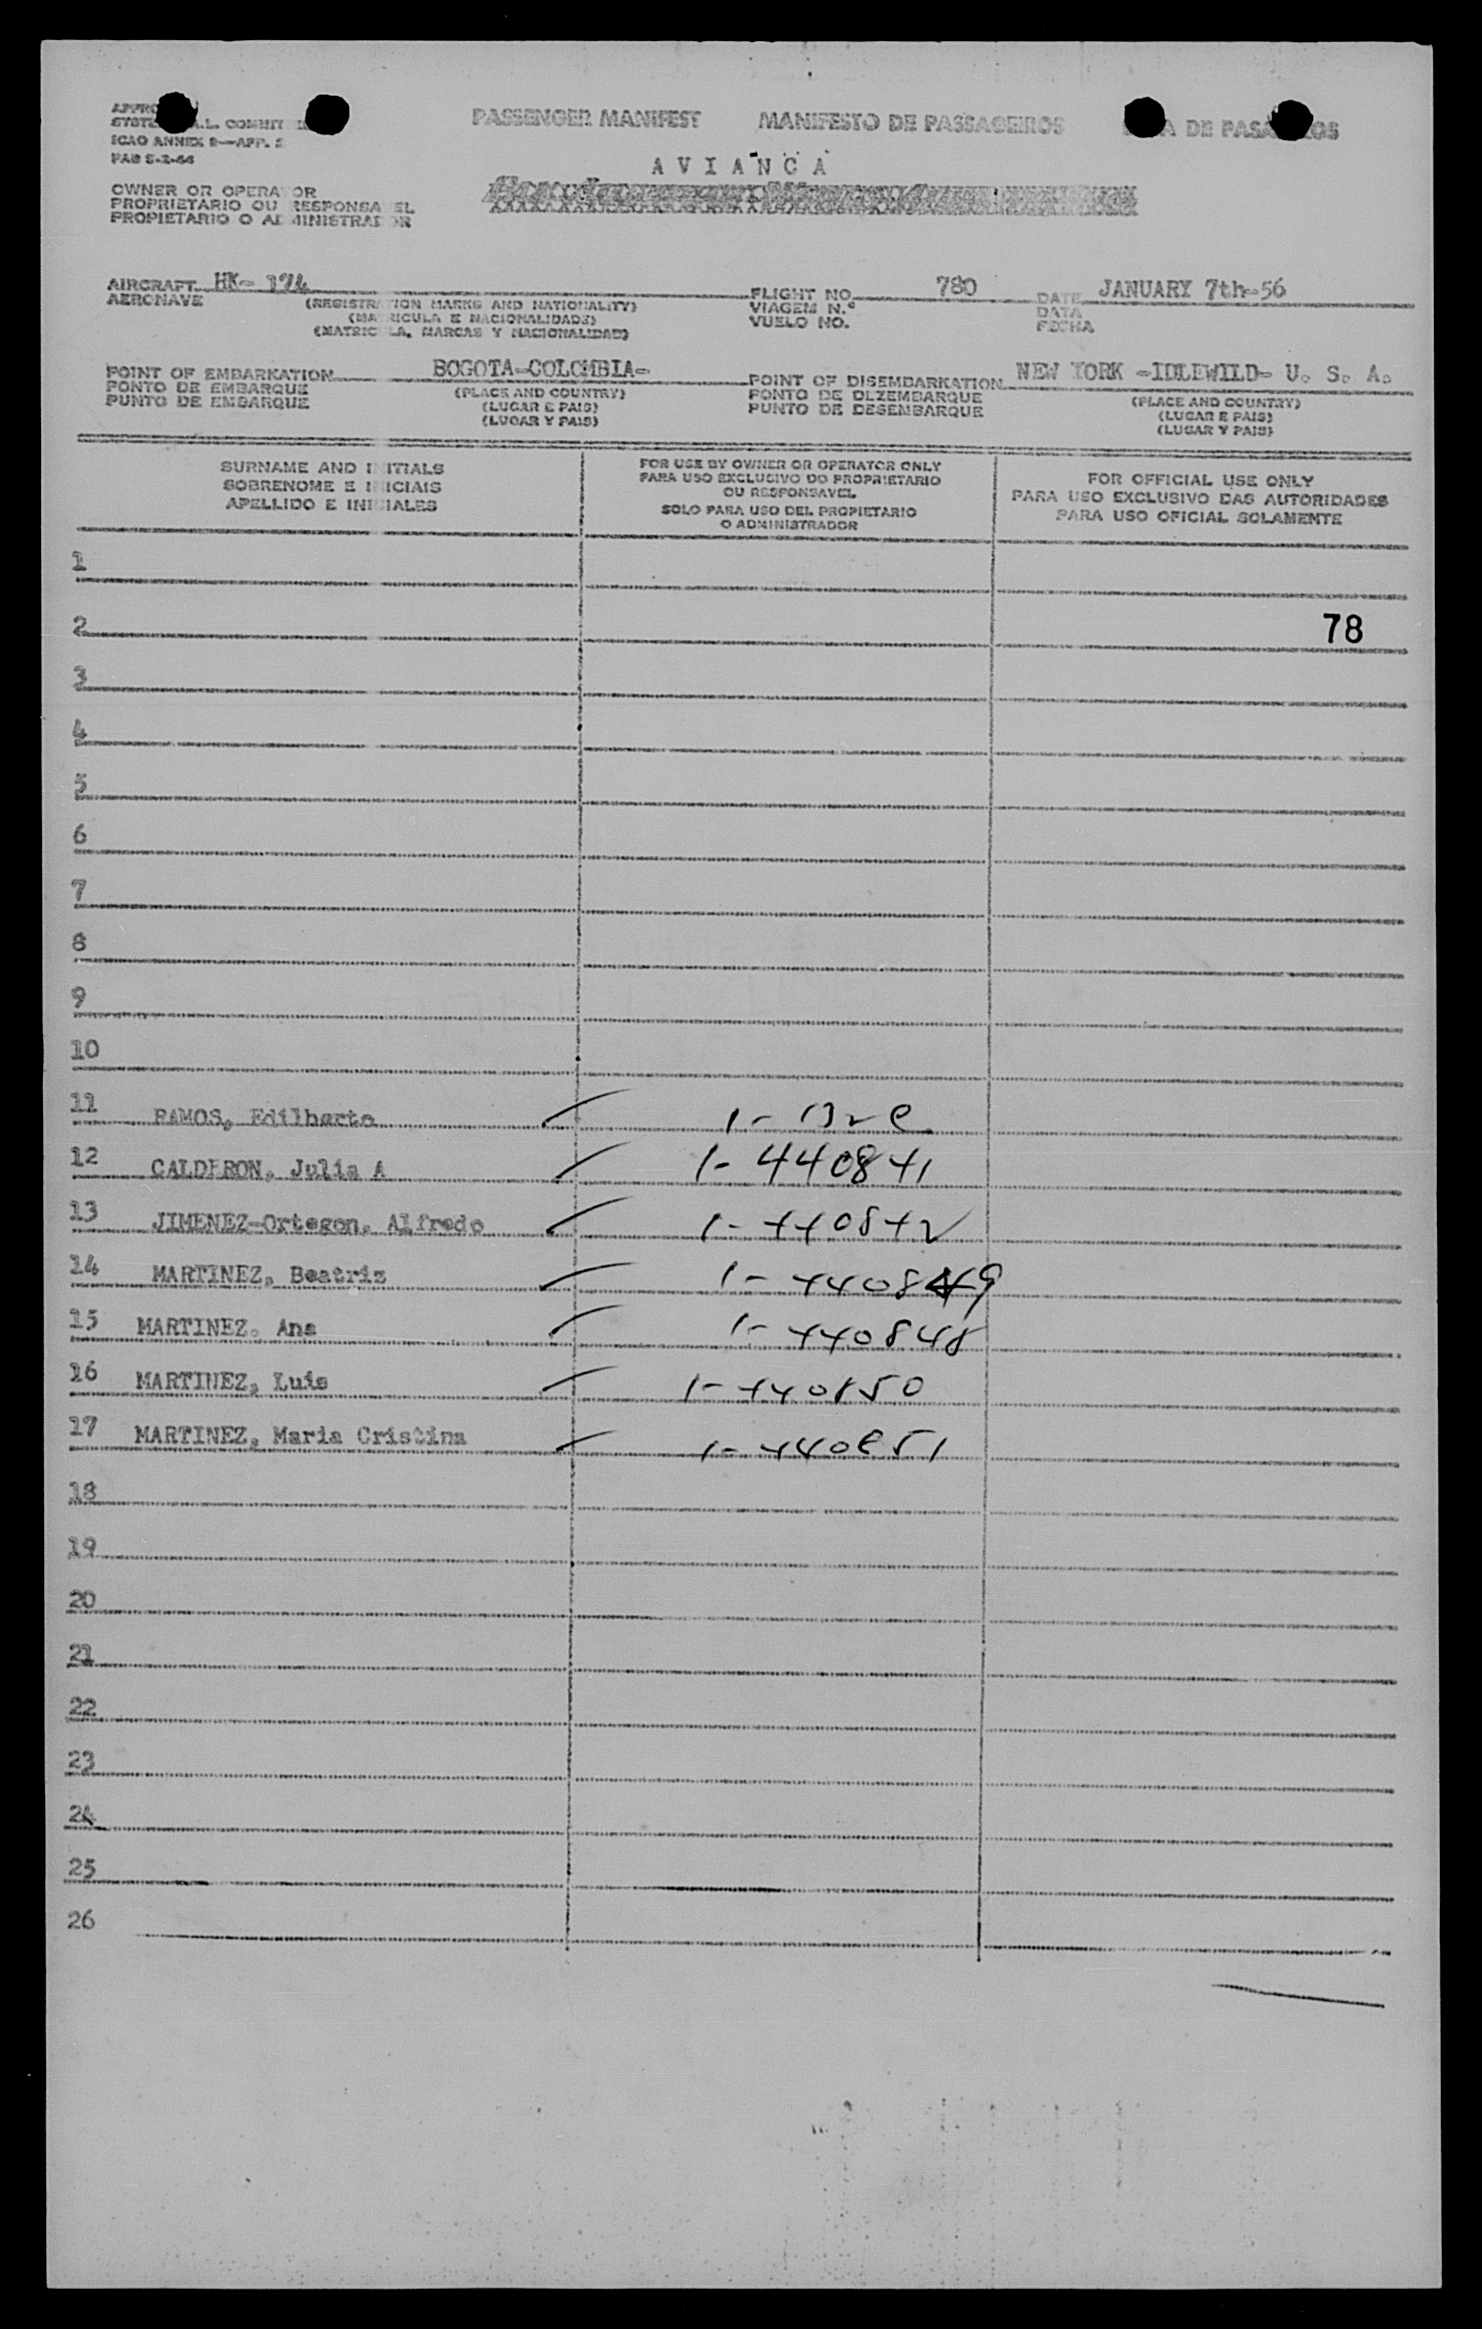 PASSENGER MANIFEST MANIFESTO DE PASSAGEIROS DE
APPRO
COMMIT
ICAO ANNEX 9—APP.
PAB 5-2-44
A V I A N C A
OWNER OR OPERA OR
PROPRIETARIO OU RESPONSA EL
PROPIETARIO O AD MINISTRAD R
AIRCRAFT HK- FLIGHT NO. 780 DATE JANUARY 7th-56
AERONAVE (REGISTRA ION MARKS AND NATIONALITY) VIAGEM N.º DATA
(MA RICULA E NACIONALIDADE) VUELO NO. FECHA
(MATRIC LA, MARCAS Y NACIONALIDAD)
POINT OF EMBARKATION BOGOTA-COLOMBIA- POINT OF DISEMBARKATION NEW YORK -IDLEWILD- U. S. A.
PONTO DE EMBARQUE (PLACE AND COUNTRY) PONTO DE DEZEMBARQUE (PLACE AND COUNTRY)
PUNTO DE EMBARQUE (LUGAR E PAIS) PUNTO DE DESEMBARQUE (LUGAR E PAIS)
(LUGAR Y PAIS) (LUGAR Y PAIS)
SURNAME AND I ITIALS
SOBRENOME E I ICIAIS
APELLIDO E INI IALES
FOR USE BY OWNER OR OPERATOR ONLY
PARA USO EXCLUSIVO DO PROPRIETARIO
OU RESPONSAVEL
SOLO PARA USO DEL PROPIETARIO
O ADMINISTRADOR
FOR OFFICIAL USE ONLY
PARA USO EXCLUSIVO DAS AUTORIDADES
PARA USO OFICIAL SOLAMENTE
1
2 78
3
4
5
6
7
8
9
10
11 RAMOS, Edilberto
12 CALDERON, Julia A 1-440841
13 JIMENEZ-Ortegon, Alfredo 1-440842
14 MARTINEZ, Beatriz 1-440849
15 MARTINEZ. Ana 1-440848
16 MARTINEZ, Luis 1-440850
17 MARTINEZ, Maria Cristina 1-440851
18
19
20
21
22
23
24
25
26